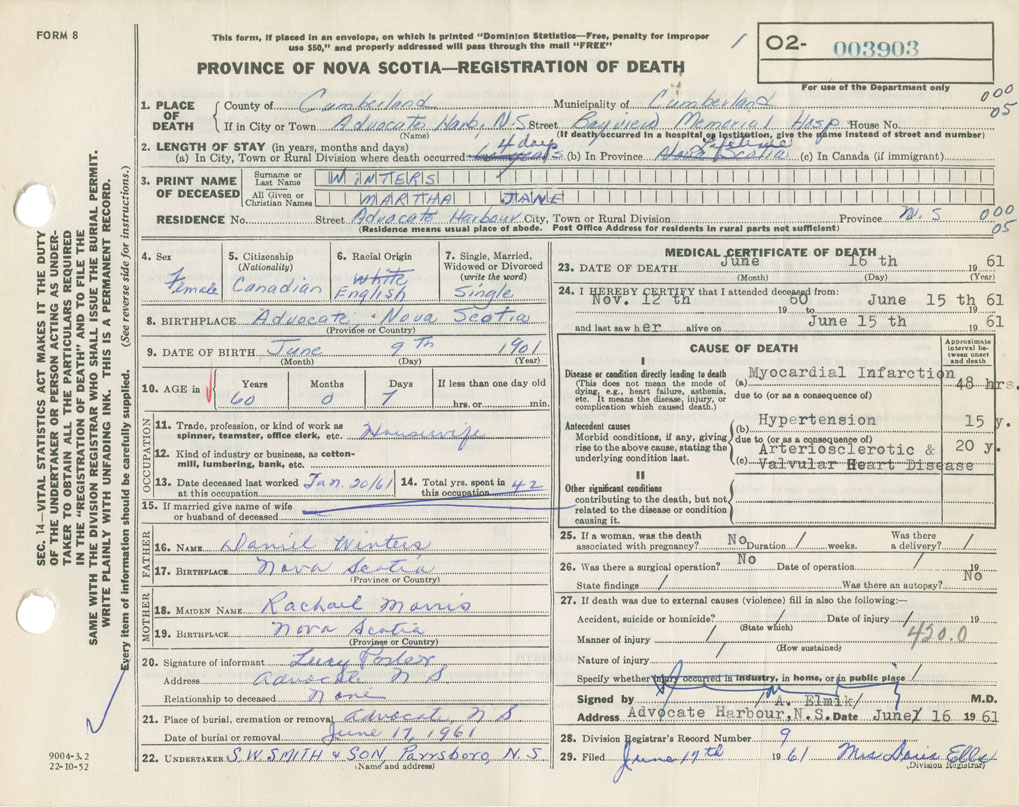 FORM 8
This form, if placed in an envelope, on which is printed "Dominion Statistics—Free, penalty for improper
use $50," and properly addressed will pass through the mail "FREE"
O2- 003903
For use of the Department only
PROVINCE OF NOVA SCOTIA—REGISTRATION OF DEATH
SEC. 14—VITAL STATISTICS ACT MAKES IT THE DUTY
OF THE UNDERTAKER OR PERSON ACTING AS UNDER-
TAKER TO OBTAIN ALL THE PARTICULARS REQUIRED
IN THE "REGISTRATION OF DEATH" AND TO FILE THE
SAME WITH THE DIVISION REGISTRAR WHO SHALL ISSUE THE BURIAL PERMIT.
WRITE PLAINLY WITH UNFADING INK. THIS IS A PERMANENT RECORD.
Every item of information should be carefully supplied. (See reverse side for instructions.)
1. PLACE OF DEATH
County of Cumberland Municipality of Cumberland 000
05
If in City or Town Advocate Harb, N.S. Street Bayview Memorial Hosp House No.
(Name) (If death occurred in a hospital or institution, give the name instead of street and number)
2. LENGTH OF STAY (in years, months and days) 4 days
(a) In City, Town or Rural Division where death occurred (b) In Province Lifetime Nova Scotia (c) In Canada (if immigrant)
3. PRINT NAME OF DECEASED
Surname or Last Name WINTERS
All Given or Christian Names MARTHA JANE
RESIDENCE No. Street Advocate Harbour City, Town or Rural Division Province N.S 000
05
(Residence means usual place of abode. Post Office Address for residents in rural parts not sufficient)
4. Sex Female
5. Citizenship (Nationality) Canadian
6. Racial Origin White English
7. Single, Married, Widowed or Divorced (write the word) Single
8. BIRTHPLACE Advocate, Nova Scotia
(Province or Country)
9. DATE OF BIRTH June 9th 1901
(Month) (Day) (Year)
10. AGE in Years Months Days If less than one day old
60 0 7 hrs. or min.
OCCUPATION
11. Trade, profession or kind of work as
spinner, teamster, office clerk, etc. Housewife
12. Kind of industry or business, as cotton-
mill, lumbering, bank, etc.
13. Date deceased last worked at this occupation Jan. 20/61
14. Total yrs. spent in this occupation 42
15. If married give name of wife
or husband of deceased
FATHER
16. NAME Daniel Winters
17. BIRTHPLACE Nova Scotia
(Province or Country)
MOTHER
18. MAIDEN NAME Rachael Morris
19. BIRTHPLACE Nova Scotia
(Province or Country)
20. Signature of informant Lucy
Address Advocate N S
Relationship to deceased None
21. Place of burial, cremation or removal Advocate, N S
Date of burial or removal June 17, 1961
22. UNDERTAKER S.W. SMITH & SON, Parrsboro, N.S
(Name and address)
9004-3.2
22-10-52
MEDICAL CERTIFICATE OF DEATH
23. DATE OF DEATH June 16 th 1961
(Month) (Day) (Year)
24. I HEREBY CERTIFY that I attended deceased from:
Nov. 12 th 19 60 to June 15 th 61
and last saw her alive on June 15 th 1961
CAUSE OF DEATH
Approximate interval between onset and death
I
Disease or condition directly leading to death
(This does not mean the mode of
dying, e.g., heart failure, asthenia,
etc. It means the disease, injury, or
complication which caused death.)
(a) Myocardial Infarction 48 hrs.
due to (or as a consequence of)
Antecedent causes
Morbid conditions, if any, giving
rise to the above cause, stating the
underlying condition last.
(b) Hypertension 15 y.
due to (or as a consequence of)
(c) Arteriosclerotic & 20 y.
Valvular Heart Disease
II
Other significant conditions
contributing to the death, but not
related to the disease or condition
causing it.
25. If a woman, was the death
associated with pregnancy? No Duration / weeks. Was there
a delivery? /
26. Was there a surgical operation? No Date of operation / 19
State findings / Was there an autopsy? No
27. If death was due to external causes (violence) fill in also the following:—
Accident, suicide or homicide? / Date of injury / 19
(State which) 420.0
Manner of injury /
(How sustained)
Nature of injury
Specify whether injury occurred in industry, in home, or in public place /
Signed by A. Elmik M.D.
Address Advocate Harbour, N.S. Date June 16 1961
28. Division Registrar's Record Number 9
29. Filed June 17th 1961 Mrs Doris Ells
(Division Registrar)